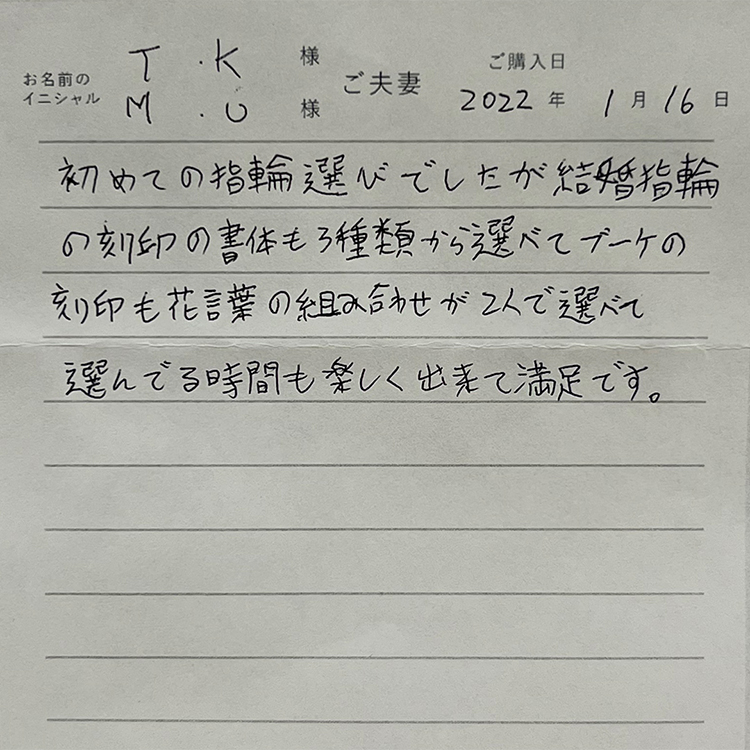 お名前の
イニシャル
T . K 様
M . U 様
ご夫妻
ご購入日
2022 年 1 月 16 日
初めての指輪選びでしたが結婚指輪
の刻印の書体も3種類から選べてブーケの
刻印も花言葉の組み合わせが2人で選べて
選んでる時間も楽しく出来て満足です。